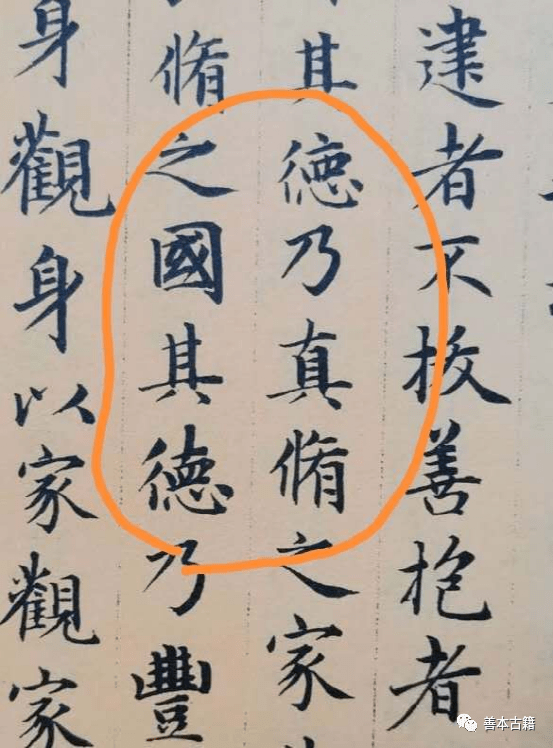 建者不拔善抱者
其徳乃真脩之家
脩之國其徳乃豐
身觀身以家觀家
善本古籍